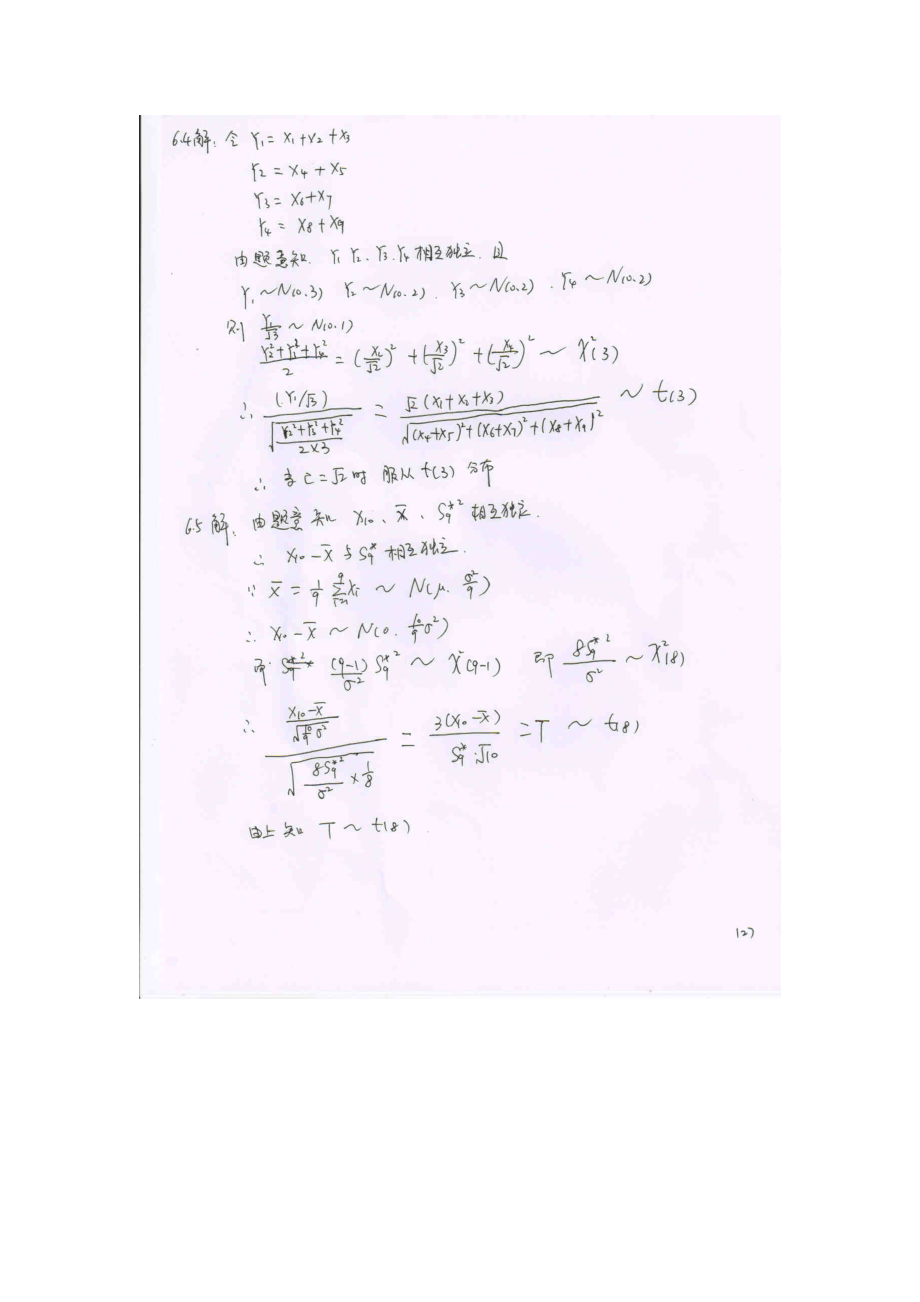 6.4解：令 Y₁ = X₁ + X₂ + X₃
Y₂ = X₄ + X₅
Y₃ = X₆ + X₇
Y₄ = X₈ + X₉
由题意知. Y₁ Y₂、Y₃、Y₄ 相互独立. 且
Y₁ ~ N(0.3) Y₂ ~ N(0.2). Y₃ ~ N(0.2). Y₄ ~ N(0.2)
则 Y₁/√3 ~ N(0.1)
(Y₂² + Y₃² + Y₄²)/2 = (X₂/√2)² + (X₃/√2)² + (X₄/√2)² ~ χ²(3)
∴ (Y₁/√3) / √((Y₂² + Y₃² + Y₄²)/(2×3)) = √2 (X₁+X₂+X₃) / √((X₄+X₅)² + (X₆+X₇)² + (X₈+X₉)²) ~ t(3)
∴ 当 C = √2 时 服从 t(3) 分布
6.5 解. 由题意知 X₁₀、X̄、S₉*² 相互独立.
∴ X₁₀ - X̄ 与 S₉* 相互独立.
∵ X̄ = 1/9 ∑ᵢ₌₁⁹ Xᵢ ~ N(μ. σ²/9)
∴ X₁₀ - X̄ ~ N(0. 10/9 σ²)
(9-1)/σ² S₉*² ~ χ²(9-1) 即 8S₉*²/σ² ~ χ²(8)
∴ ((X₁₀ - X̄)/√(10/9 σ²)) / √(8S₉*²/σ² × 1/8) = 3(X₁₀ - X̄)/(S₉*·√10) = T ~ t(8)
由上知 T ~ t(8).
127